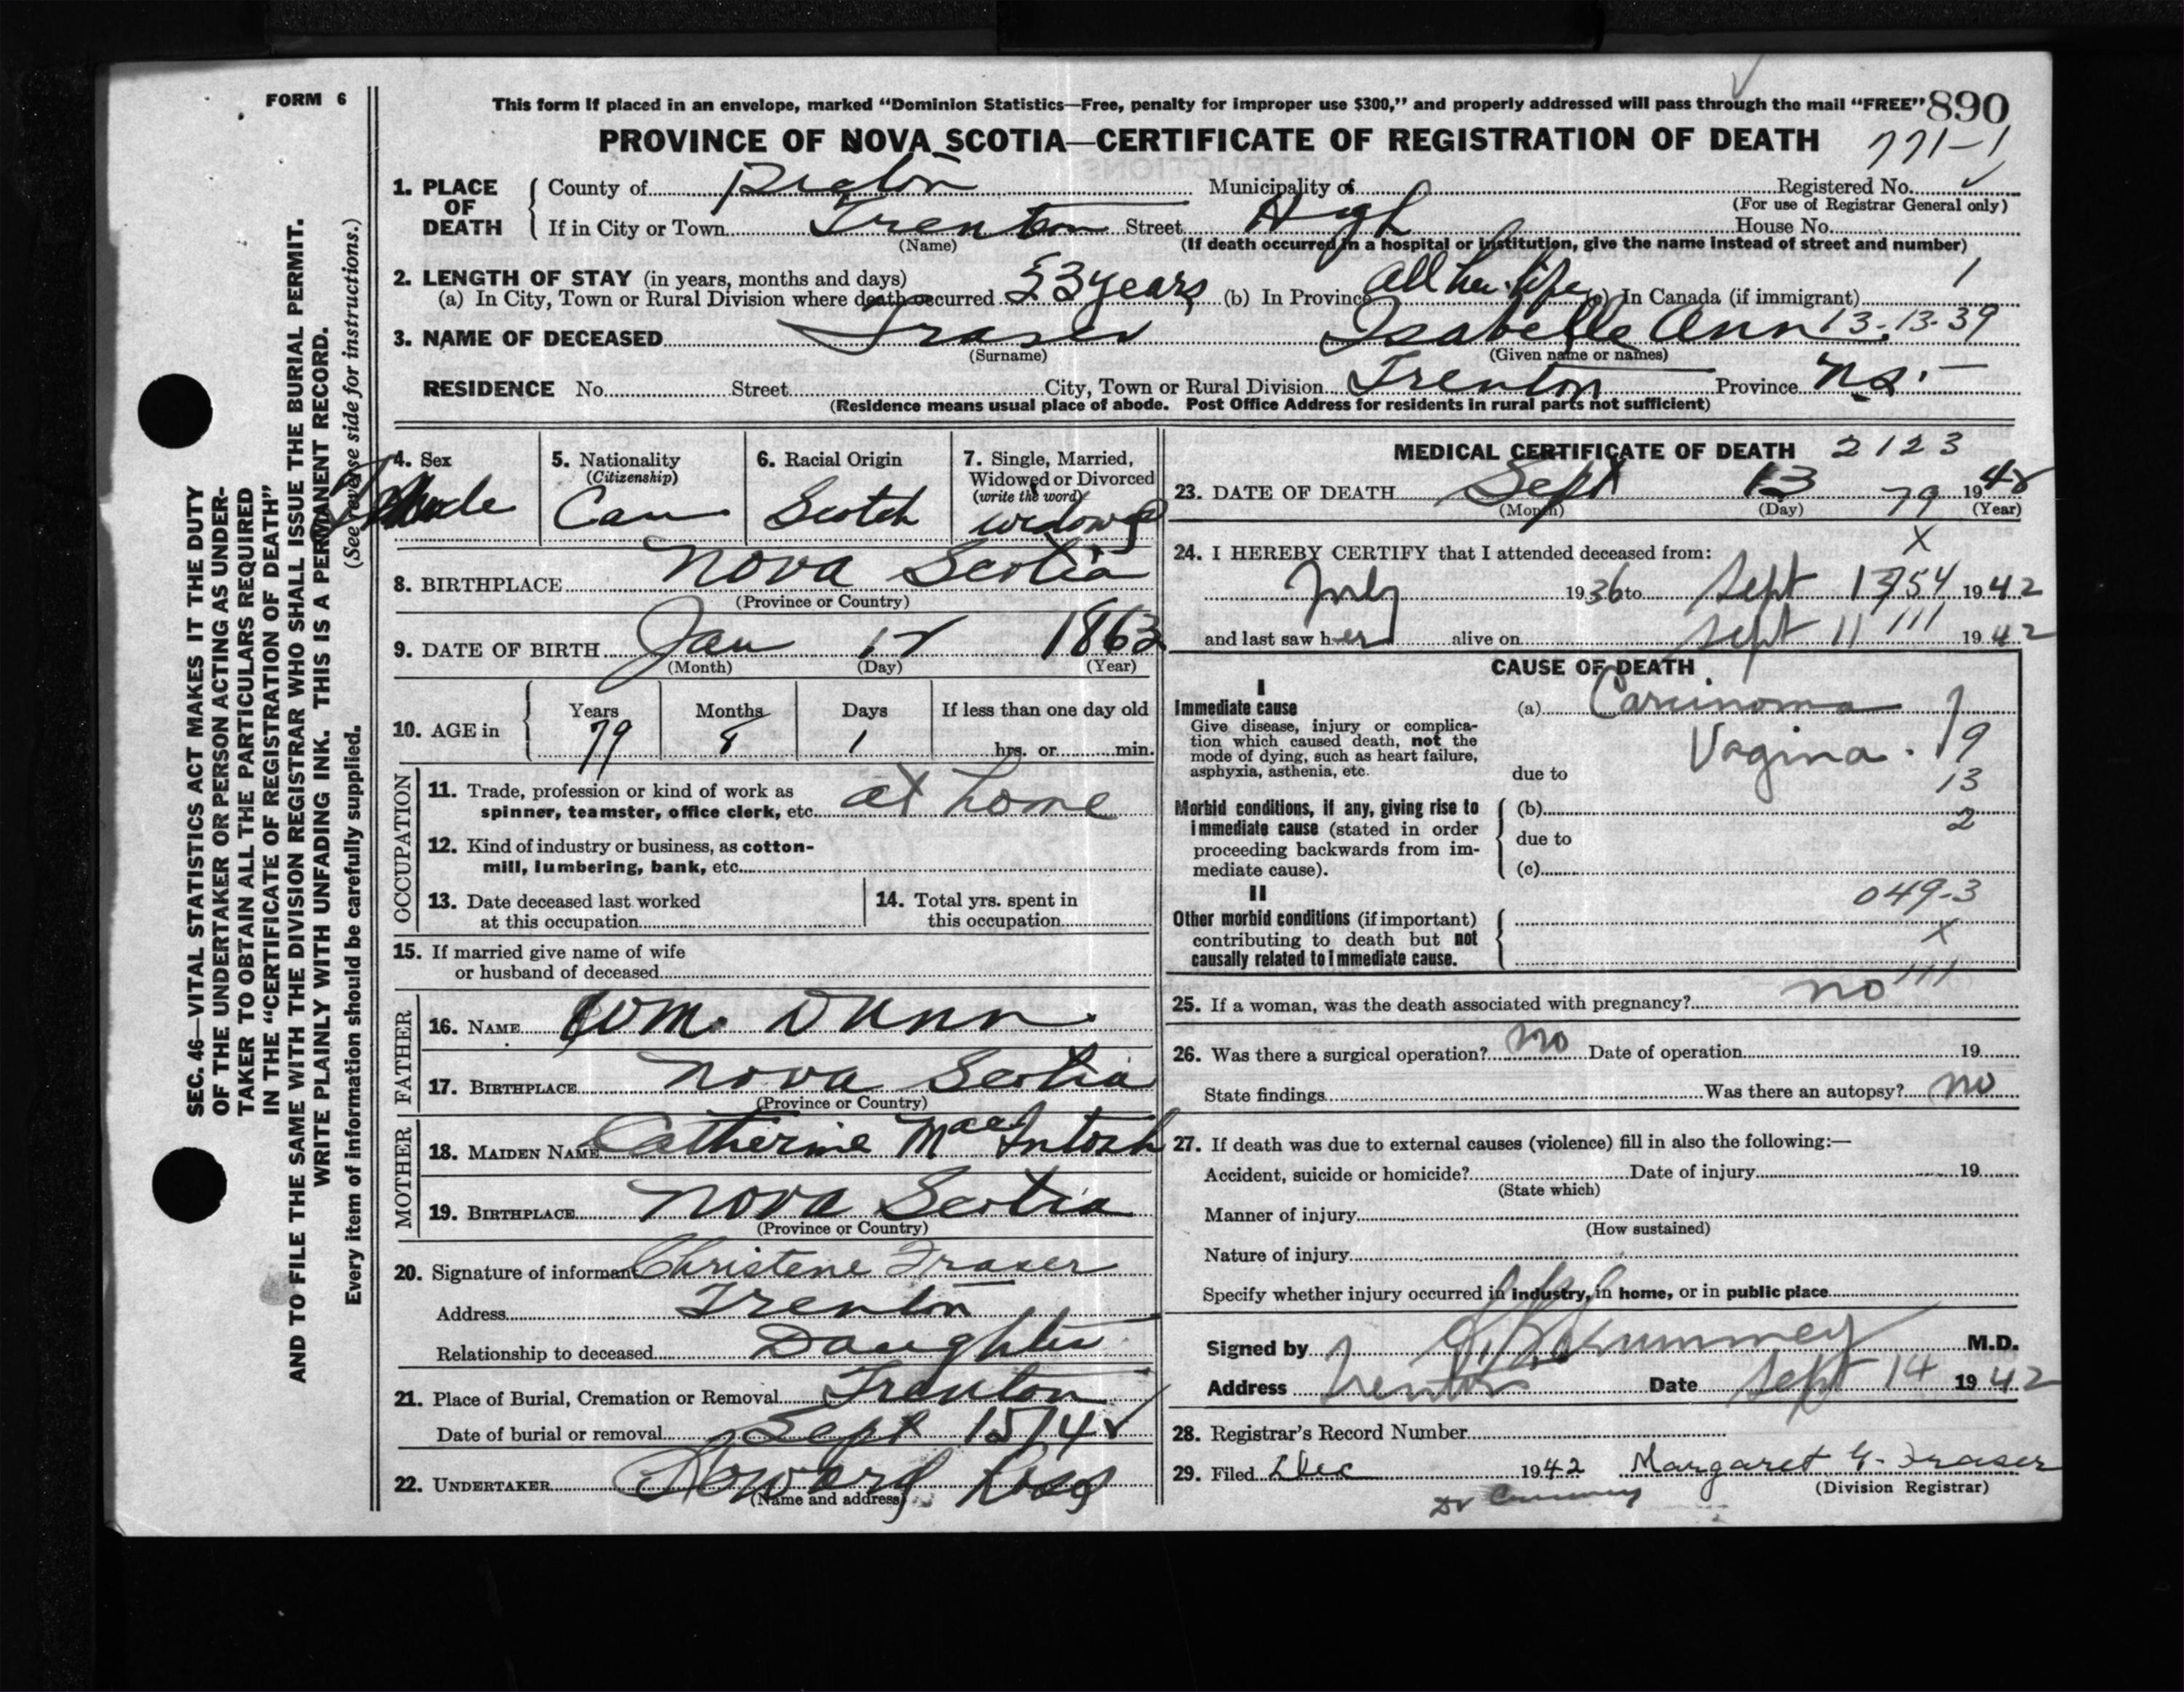 FORM 6
This form if placed in an envelope, marked “Dominion Statistics—Free, penalty for improper use $300,” and properly addressed will pass through the mail “FREE” 890
PROVINCE OF NOVA SCOTIA—CERTIFICATE OF REGISTRATION OF DEATH
771-1
1. PLACE OF DEATH
County of Pictou Municipality of Registered No.
(For use of Registrar General only)
If in City or Town Trenton Street High House No.
(Name) (If death occurred in a hospital or institution, give the name instead of street and number)
2. LENGTH OF STAY (in years, months and days)
(a) In City, Town or Rural Division where death occurred 53 years (b) In Province All her life (c) In Canada (if immigrant) 1
3. NAME OF DECEASED Fraser Isabelle Ann 13-13-39
(Surname) (Given name or names)
RESIDENCE No. Street City, Town or Rural Division Trenton Province N.S.
(Residence means usual place of abode. Post Office Address for residents in rural parts not sufficient)
4. Sex
5. Nationality (Citizenship) Can
6. Racial Origin Scotch
7. Single, Married, Widowed or Divorced (write the word) widowed
8. BIRTHPLACE Nova Scotia
(Province or Country)
9. DATE OF BIRTH Jan 12 1863
(Month) (Day) (Year)
10. AGE in Years Months Days If less than one day old
79 8 1 hrs. or min.
OCCUPATION
11. Trade, profession or kind of work as spinner, teamster, office clerk, etc. at home
12. Kind of industry or business, as cotton-mill, lumbering, bank, etc.
13. Date deceased last worked at this occupation
14. Total yrs. spent in this occupation
15. If married give name of wife or husband of deceased
FATHER
16. NAME Wm. Dunn
17. BIRTHPLACE Nova Scotia
(Province or Country)
MOTHER
18. MAIDEN NAME Catherine MacIntosh
19. BIRTHPLACE Nova Scotia
(Province or Country)
20. Signature of informant Christene Fraser
Address Trenton
Relationship to deceased Daughter
21. Place of Burial, Cremation or Removal Trenton
Date of burial or removal Sept 15/42
22. UNDERTAKER Howard Ross
(Name and address)
MEDICAL CERTIFICATE OF DEATH 2123
23. DATE OF DEATH Sept 13 79 1942
(Month) (Day) (Year)
24. I HEREBY CERTIFY that I attended deceased from: X
July 1936 to Sept 13 1942
and last saw her alive on Sept 11 111 1942
CAUSE OF DEATH
I
Immediate cause
Give disease, injury or complication which caused death, not the mode of dying, such as heart failure, asphyxia, asthenia, etc.
(a) Carcinoma
Vagina.
due to
9
13
2
Morbid conditions, if any, giving rise to immediate cause (stated in order proceeding backwards from immediate cause).
(b)
due to
(c)
II
Other morbid conditions (if important) contributing to death but not causally related to immediate cause.
049-3
X
111
25. If a woman, was the death associated with pregnancy? no
26. Was there a surgical operation? no Date of operation 19
State findings Was there an autopsy? no
27. If death was due to external causes (violence) fill in also the following:—
Accident, suicide or homicide? Date of injury 19
(State which)
Manner of injury
(How sustained)
Nature of injury
Specify whether injury occurred in industry, in home, or in public place
Signed by M.D.
Address Trenton Date Sept 14 1942
28. Registrar’s Record Number
29. Filed Dec 1942 Margaret G. Fraser
(Division Registrar)
SEC. 46—VITAL STATISTICS ACT MAKES IT THE DUTY
OF THE UNDERTAKER OR PERSON ACTING AS UNDER-
TAKER TO OBTAIN ALL THE PARTICULARS REQUIRED
IN THE “CERTIFICATE OF REGISTRATION OF DEATH”
AND TO FILE THE SAME WITH THE DIVISION REGISTRAR WHO SHALL ISSUE THE BURIAL PERMIT.
WRITE PLAINLY WITH UNFADING INK. THIS IS A PERMANENT RECORD.
Every item of information should be carefully supplied. (See reverse side for instructions.)